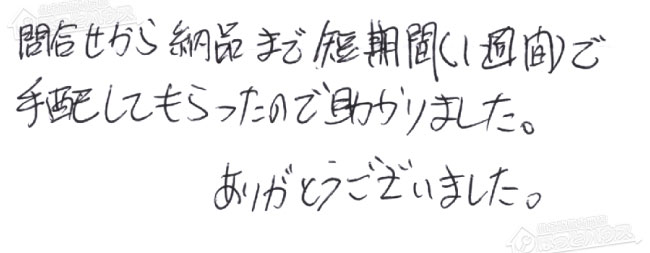 問合せから納品まで短期間(1週間)で
手配してもらったので助かりました。
ありがとうございました。